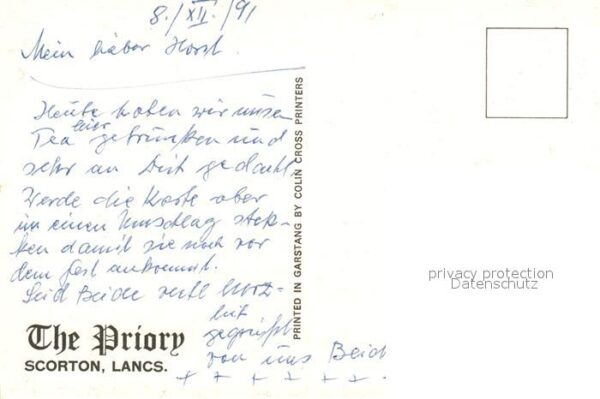 8./XII./91
Mein lieber Horst.
Heute haben wir unsen
hier
Tea getrunken und
sehr an Dich gedacht.
Werde die Karte aber
in einen Umschlag stek-
ken damit sie noch vor
dem Fest ankommt.
Seid Beide recht herz-
lich
gegrüßt
von uns Beid
+ + + + + +
The Priory
SCORTON, LANCS.
PRINTED IN GARSTANG BY COLIN CROSS PRINTERS
privacy protection
Datenschutz